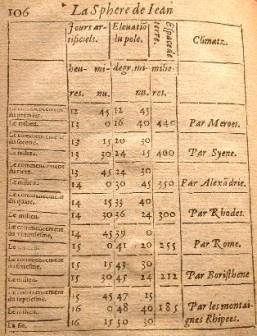 106 La Sphere de Iean
Iours ar- Eleuatiõ Espace de
tificiels. du pole. terre. Climatz.
heu- mi- degr. mi- milie-
res. nu. nu. res.
12 45 12 45
Le milieu. 13 0 16 40 440 Par Meroes.
13 15 20 30
Le milieu. 13 30 24 15 400 Par Syene.
Le commencement 45 30
Le milieu. 14 0 30 45 350 Par Alexãdrie.
Le commencement 14 15 33 40
Le milieu. 14 30 36 24 300 Par Rhodes.
Le commencement 14 45 39 0
Le milieu. 15 0 41 20 255 Par Rome.
Le commencement 15 15 43 30
Le milieu. 15 30 45 24 212 Par Boristhene
Le commencement 15 45 47 15
Le milieu. 16 0 48 40 185 Par les montai-
La fin. 16 15 50 30 gnes Rhipees.